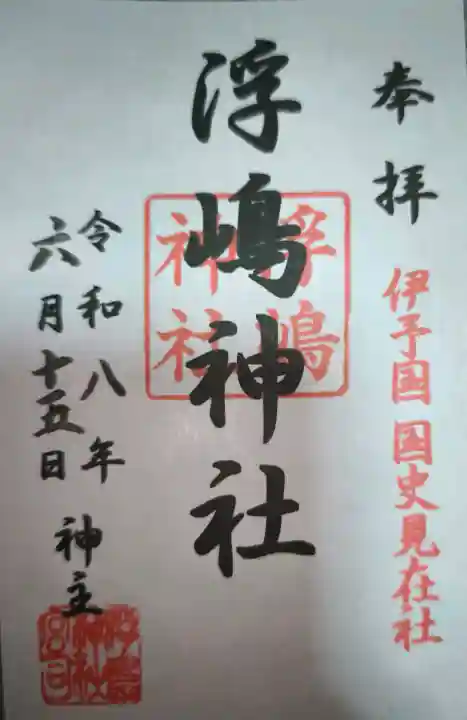 奉拝
伊予国 国史見在社
浮嶋神社
浮嶋
神社
令和八年
六月十五日
神主